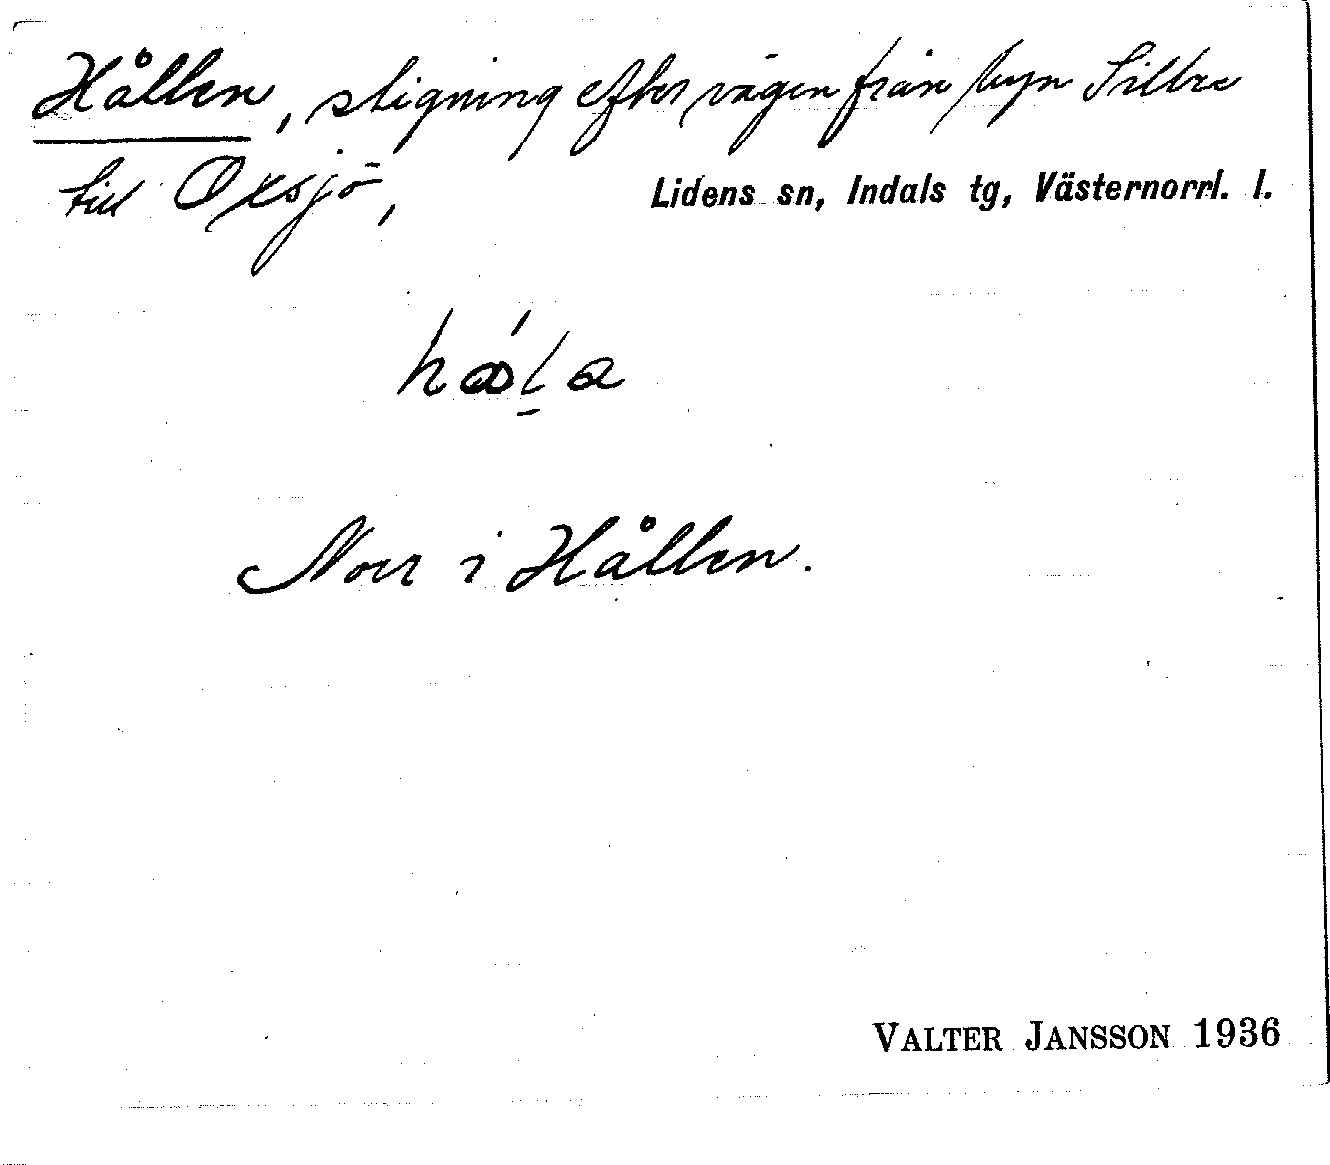 Hållen, stigning efter vägen från byn Sillre
till Oxsjö,
Lidens sn, Indals tg, Västernorrl. l.
Norr i Hållen.
VALTER JANSSON 1936